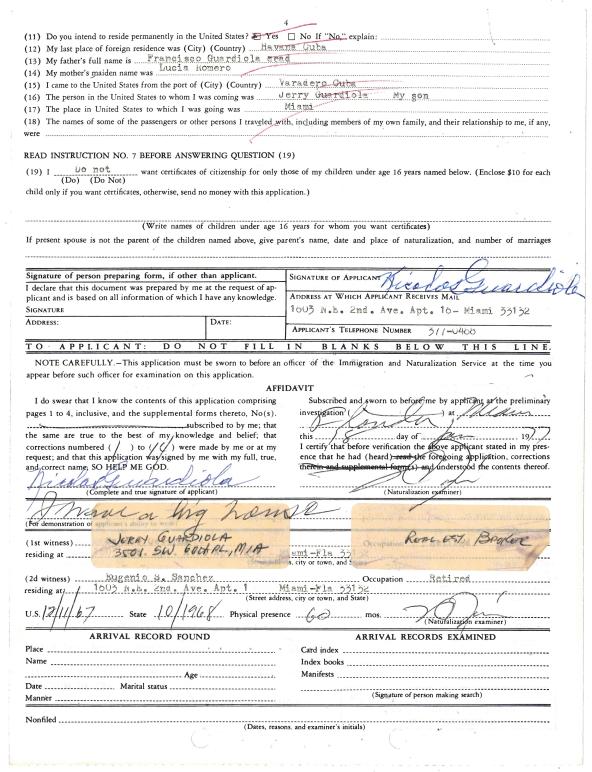 4
(11) Do you intend to reside permanently in the United States? ☒ Yes ☐ No If "No," explain:
(12) My last place of foreign residence was (City) (Country) Havana Cuba
(13) My father's full name is Francisco Guardiola
(14) My mother's maiden name was Lucia Romero
(15) I came to the United States from the port of (City) (Country) Varadero Cuba
(16) The person in the United States to whom I was coming was Jerry Guardiola My son
(17) The place in United States to which I was going was Miami
(18) The names of some of the passengers or other persons I traveled with, including members of my own family, and their relationship to me, if any,
were
READ INSTRUCTION NO. 7 BEFORE ANSWERING QUESTION (19)
(19) I Do not want certificates of citizenship for only those of my children under age 16 years named below. (Enclose $10 for each
(Do) (Do Not)
child only if you want certificates, otherwise, send no money with this application.)
(Write names of children under age 16 years for whom you want certificates)
If present spouse is not the parent of the children named above, give parent's name, date and place of naturalization, and number of marriages
Signature of person preparing form, if other than applicant.
I declare that this document was prepared by me at the request of ap-
plicant and is based on all information of which I have any knowledge.
SIGNATURE
ADDRESS: DATE:
SIGNATURE OF APPLICANT Nicolas Guardiola
ADDRESS AT WHICH APPLICANT RECEIVES MAIL
1603 N.E. 2nd. Ave. Apt. 16- Miami 33132
APPLICANT'S TELEPHONE NUMBER 377-0400
TO APPLICANT: DO NOT FILL IN BLANKS BELOW THIS LINE.
NOTE CAREFULLY.—This application must be sworn to before an officer of the Immigration and Naturalization Service at the time you
appear before such officer for examination on this application.
AFFIDAVIT
I do swear that I know the contents of this application comprising
pages 1 to 4, inclusive, and the supplemental forms thereto, No(s).
subscribed to by me; that
the same are true to the best of my knowledge and belief; that
corrections numbered (1) to (14) were made by me or at my
request; and that this application was signed by me with my full, true,
and correct name, SO HELP ME GOD.
Nicolas Guardiola
(Complete and true signature of applicant)
Subscribed and sworn to before me by applicant at the preliminary
investigation ( ) at Miami
this 18 day of 19
I certify that before verification the above applicant stated in my pres-
ence that he had (heard) read the foregoing application, corrections
therein and supplemental form(s) and understood the contents thereof.
(Naturalization examiner)
I have a big house
(For demonstration of applicant's ability to write)
(1st witness) JERRY GUARDIOLA Real Est. Broker
residing at 3501 SW. 60th PL, MIA Miami-Fla
city, town, or State)
(2d witness) Eugenio S. Sanchez Occupation Retired
residing at 1603 N.E. 2nd. Ave. Apt. 1 Miami-Fla 33132
(Street address, city or town, and State)
U.S. 12/11/67 State 10/1968 Physical presence 60 mos.
(Naturalization examiner)
ARRIVAL RECORD FOUND
Place
Name
Age
Date Marital status
Manner
ARRIVAL RECORDS EXAMINED
Card index
Index books
Manifests
(Signature of person making search)
Nonfiled
(Dates, reasons, and examiner's initials)